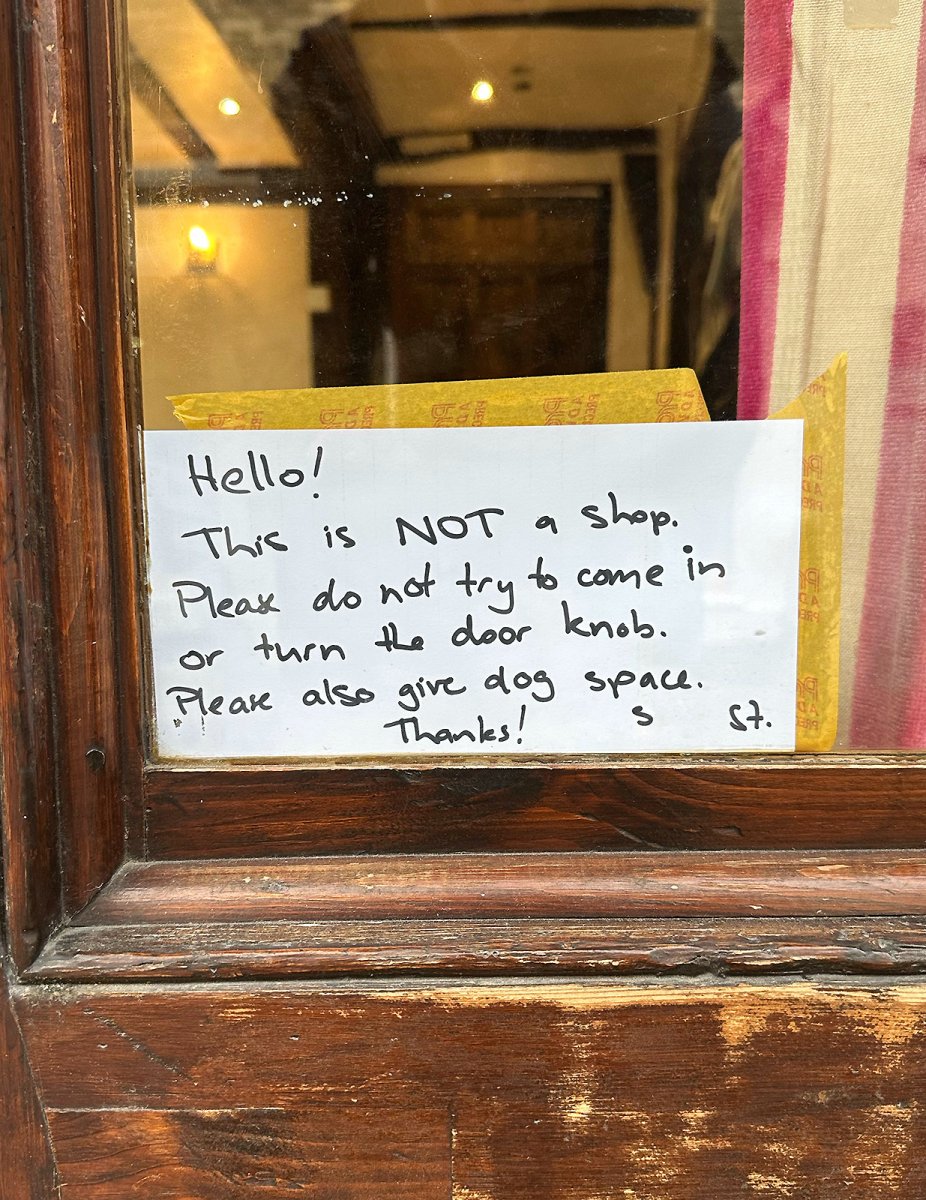 Hello!
This is NOT a shop.
Please do not try to come in
or turn the door knob.
Please also give dog space.
Thanks! S St.